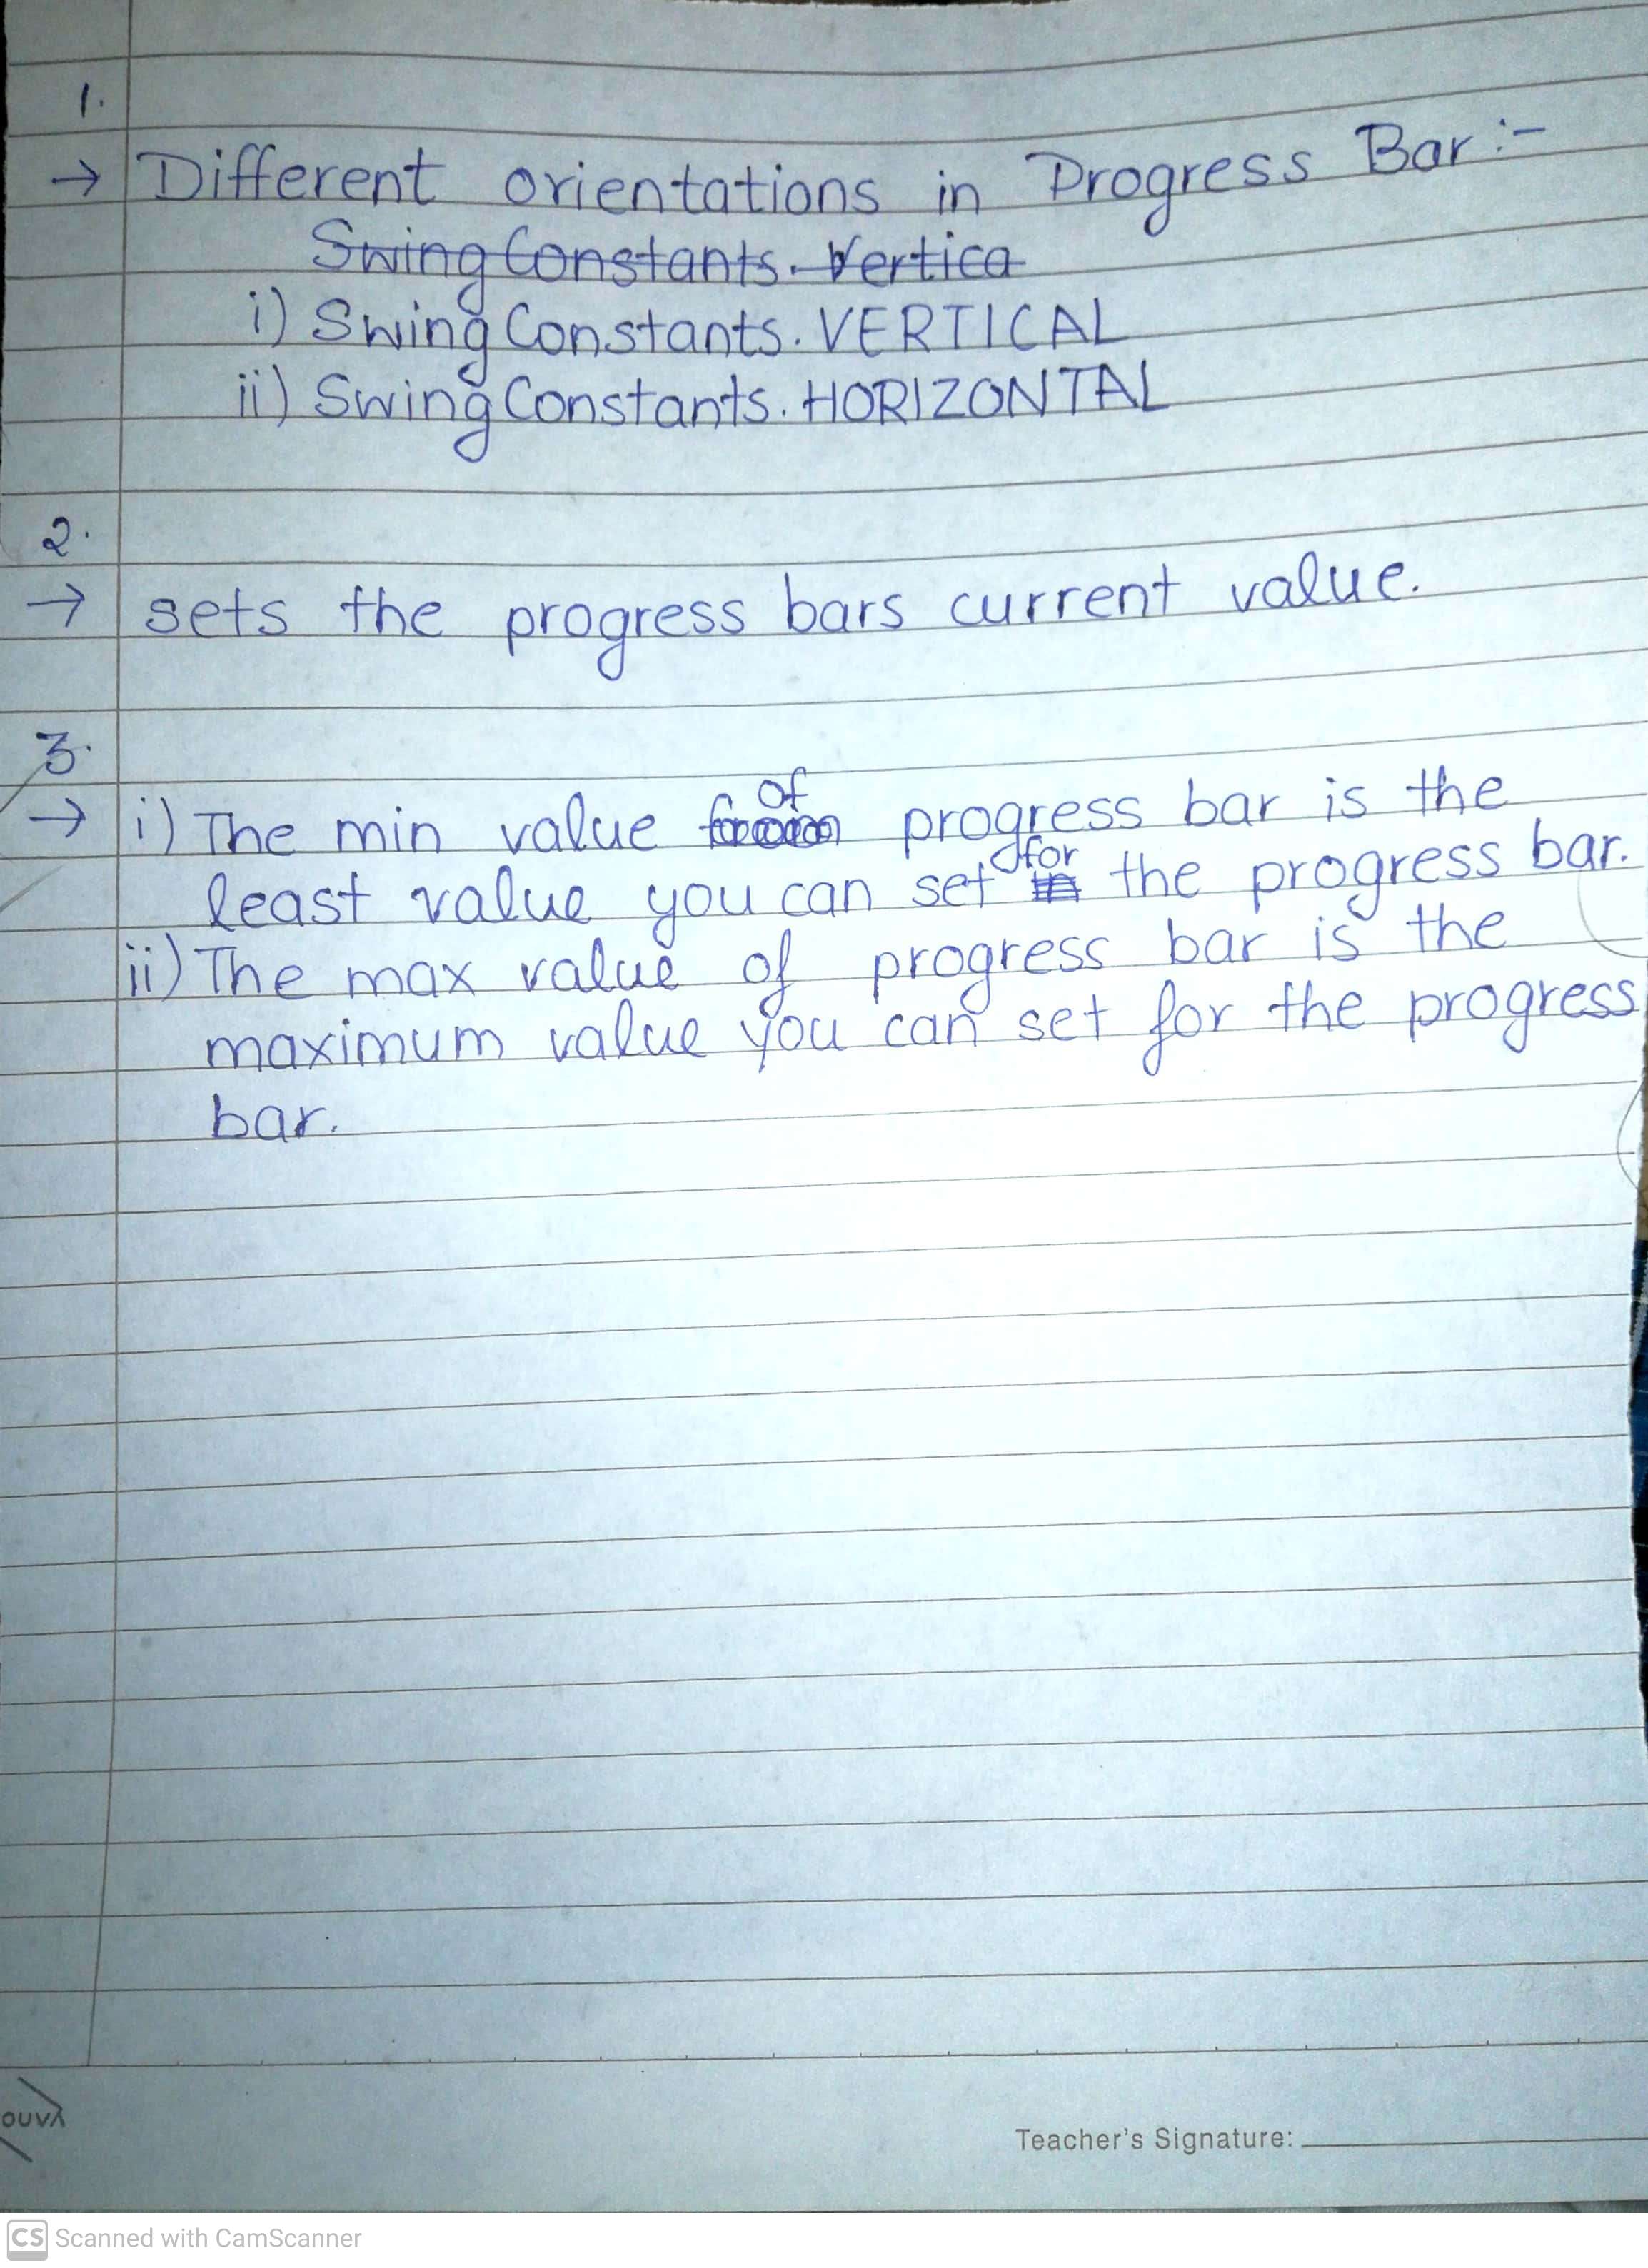 1.
→ Different orientations in Progress Bar :-
Swing Constants. Vertica
i) Swing Constants. VERTICAL
ii) Swing Constants. HORIZONTAL
2.
→ sets the progress bars current value.
3.
→ i) The min value of progress bar is the
least value you can set for the progress bar.
ii) The max value of progress bar is the
maximum value you can set for the progress
bar.
Teacher's Signature:
CS Scanned with CamScanner